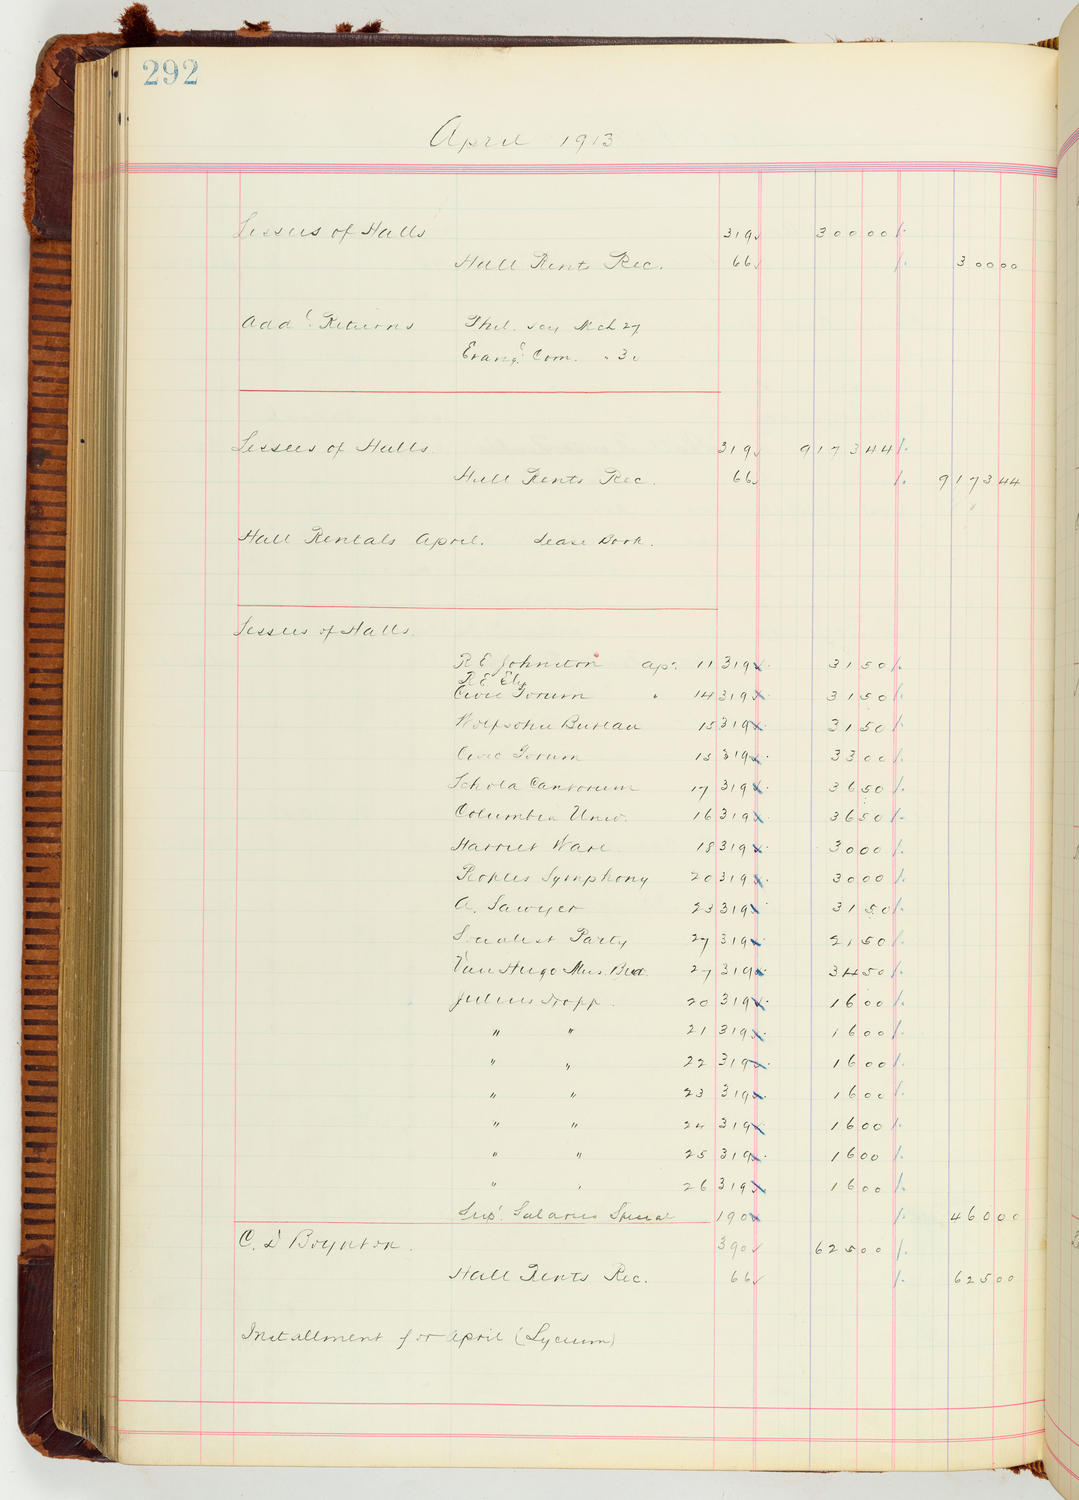 292
April 1913
Lessees of Halls 319 300 00
Hall Rents Rec. 66 300 00
Add'l Returns Phil. Soy Mch 27
Evang'l Com. " 30
Lessees of Halls 319 9173 44
Hall Rents Rec. 66 9173 44
Hall Rentals April. Lease Book.
Lessees of Halls.
R E Johnston Apr. 11 319 31 50
R E Ely
Civic Forum " 14 319 31 50
Wolfsohn Bureau 15 319 31 50
Civic Forum 15 319 33 00
Schola Cantorum 17 319 36 50
Columbia Univ. 16 319 36 50
Harriet Ware 18 319 30 00
Peoples Symphony 20 319 30 00
A. Sawyer 23 319 31 50
Socialist Party 27 319 21 50
Van Hugo Mus. Bur. 27 319 34 50
Julius Hopp. 20 319 16 00
" " 21 319 16 00
" " 22 319 16 00
" " 23 319 16 00
" " 24 319 16 00
" " 25 319 16 00
" " 26 319 16 00
Sup't. Salaries Special 190 460 00
C. D Boynton. 390 625 00
Hall Rents Rec. 66 625 00
Installment for April (Lyceum)